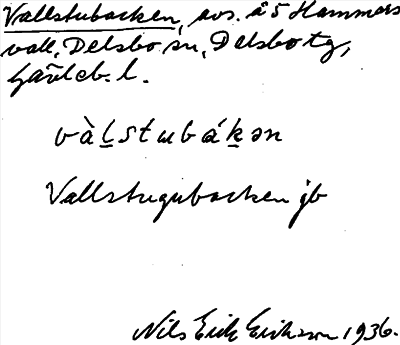 Vallstubacken, avs. å 5 Hammars
vall, Delsbo sn, Delsbo tg,
Gävleb. l.
và̀lstubákən
Vallstugubacken jb
Nils Erik Erikson 1936.